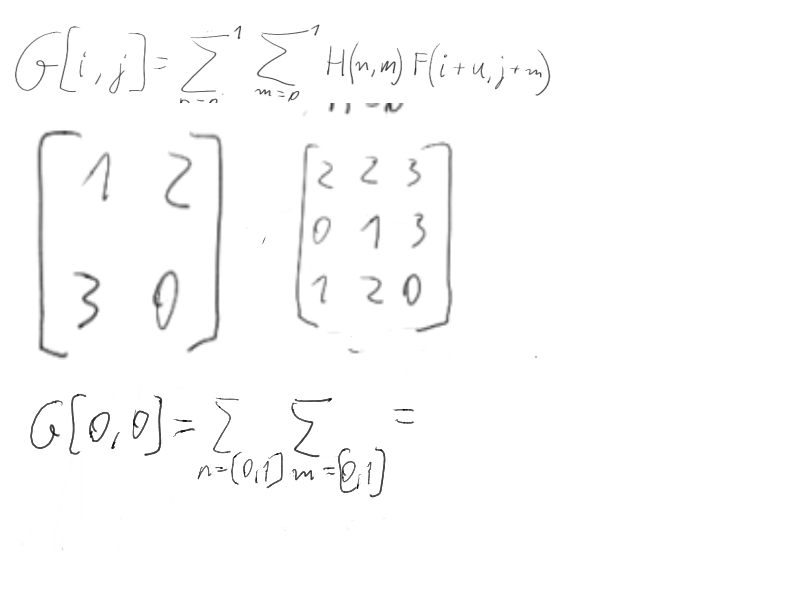 G[i,j]=∑¹n=0 ∑¹m=0 H(n,m) F(i+u,j+m)
1 2 2 2 3
0 1 3
3 0 1 2 0
G[0,0]=∑n=[0,1] ∑m=[0,1] =